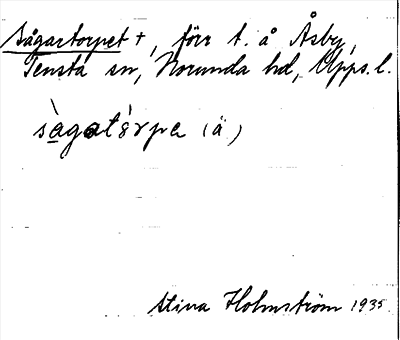 Sågartorpet +, förr t. å Åsby,
Tensta sn, Norunda hd, Upps. l.
sàgatórpe (ä)
Stina Holmström 1935